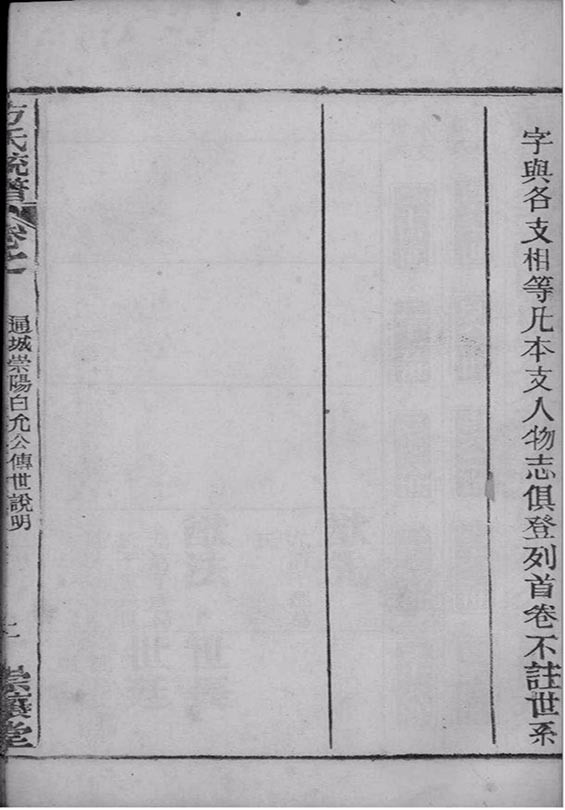 字與各支相等凡本支人物志俱登列首卷不註世系
方氏統譜
卷七
通城崇陽白允公傳世說明
二
崇讓堂